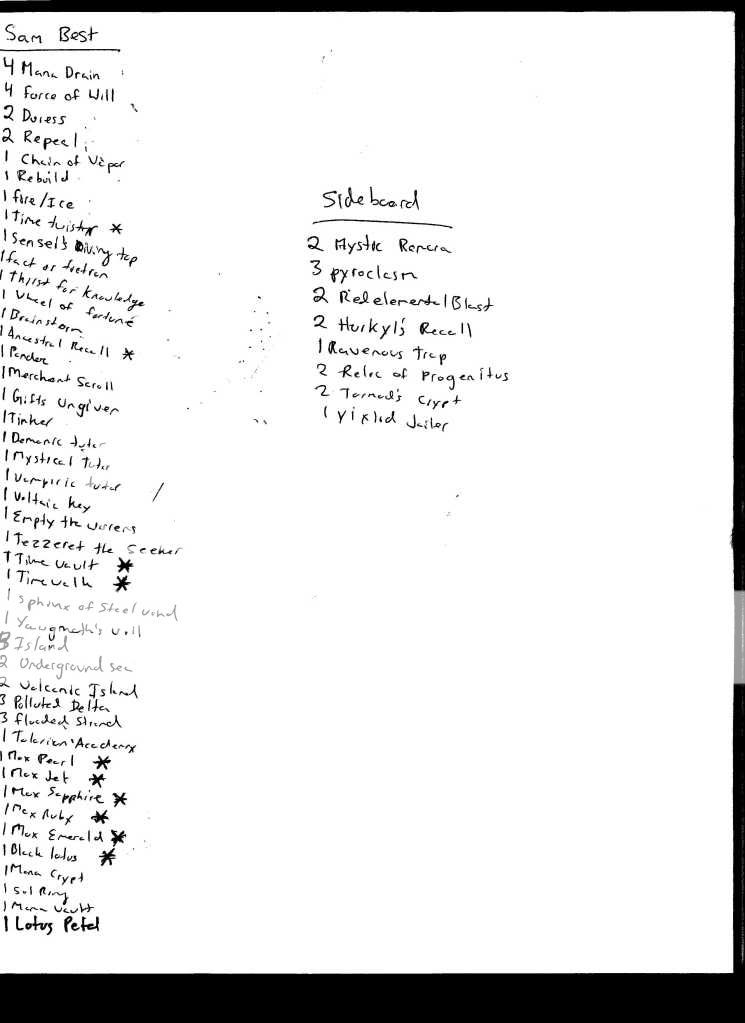 Sam Best
4 Mana Drain
4 Force of Will
2 Duress
2 Repeal
1 Chain of Vapor
1 Rebuild
1 fire/Ice
1 Time twister *
1 Sensei's Diving top
1 fact or fiction
1 Thirst for Knowledge
1 Wheel of fortune
1 Brainstorm
1 Ancestral Recall *
1 Ponder
1 Merchant Scroll
1 Gifts Ungiven
1 Tinker
1 Demonic tutor
1 Mystical Tutor
1 Vampiric tutor
1 Voltaic Key
1 Empty the warrens
1 Tezzeret the Seeker
1 Time Vault *
1 Time walk *
1 Sphinx of Steel wind
1 Yawgmoth's will
3 Island
2 Underground sea
2 Volcanic Island
3 Polluted Delta
3 flooded Strand
1 Tolarian Academy
1 Mox Pearl *
1 Mox Jet *
1 Mox Sapphire *
1 Mox Ruby *
1 Mox Emerald *
1 Black lotus *
1 Mana Crypt
1 Sol Ring
1 Mana Vault
1 Lotus Petal
Sideboard
2 Mystic Remora
3 pyroclasm
2 Red elemental Blast
2 Hurkyl's Recall
1 Ravenous Trap
2 Relic of Progenitus
2 Tormod's Crypt
1 yixlid Jailer